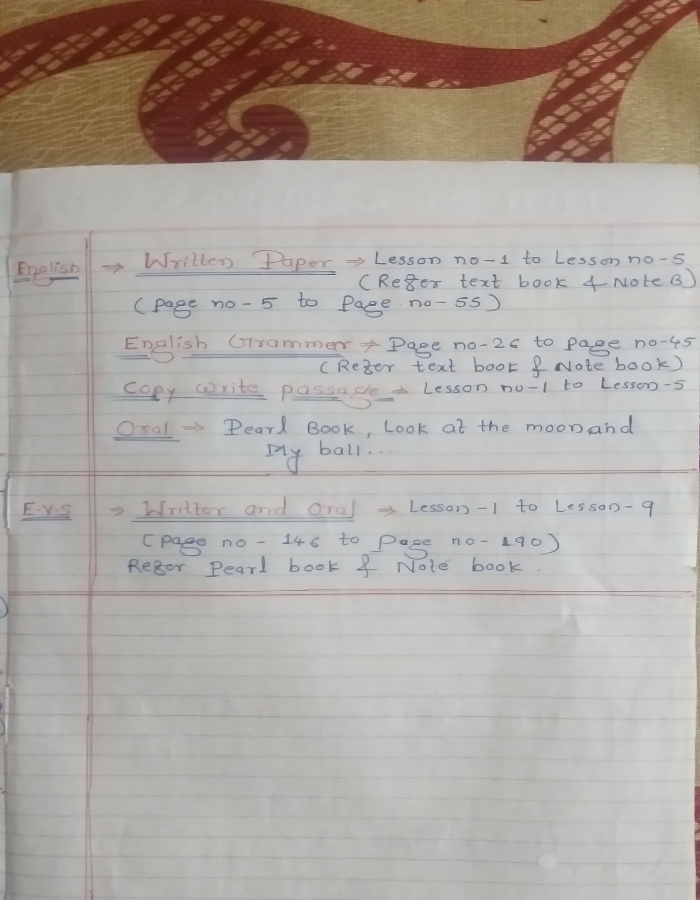 English → Written Paper → Lesson no-1 to Lesson no-5
(Refer text book & Note B)
(page no-5 to Page no-55)
English Grammer → Page no-26 to page no-45
(Refer text book & Note book)
Copy write passage → Lesson no-1 to Lesson-5
Oral → Pearl Book, Look at the moon and
My ball...
E.V.S → Written and Oral → Lesson-1 to Lesson-9
(page no-146 to Page no-190)
Refer Pearl book & Note book.